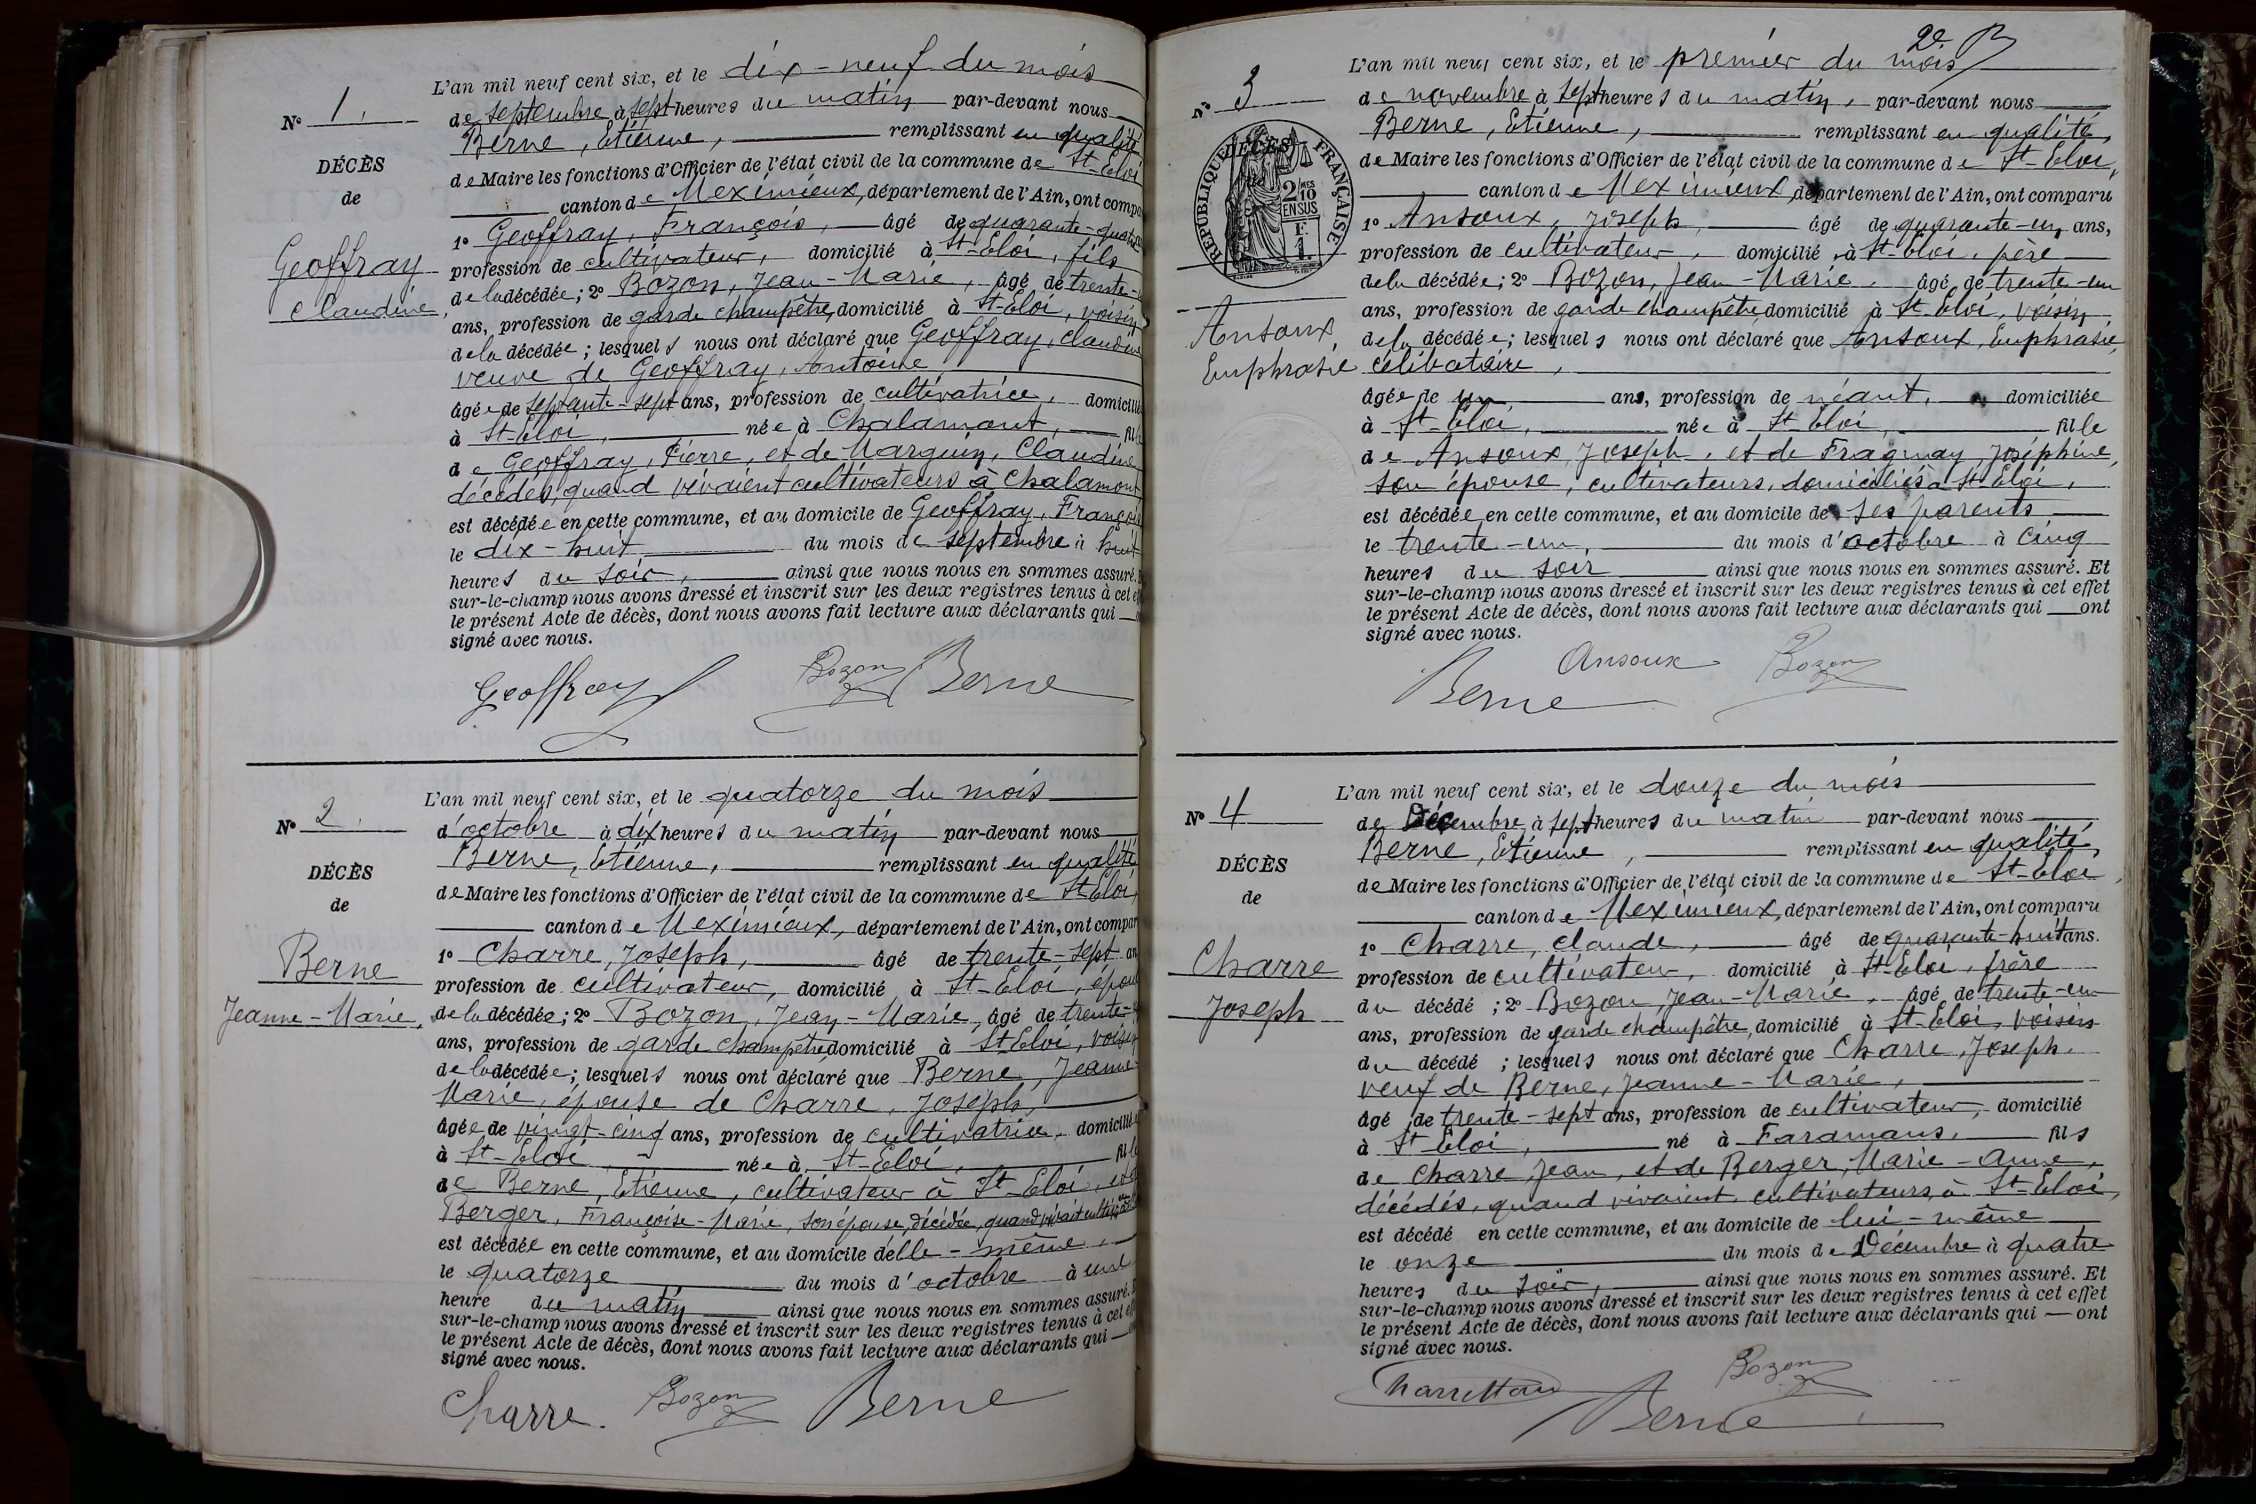 L'an mil neuf cent six, et le dix-neuf du mois
N° 1.
de septembre à sept heures du matin par-devant nous
Berne, Etienne, remplissant en qualité
DÉCÈS
de Maire les fonctions d'Officier de l'état civil de la commune de St-Eloi
de
canton de Meximieux, département de l'Ain, ont compa
1° Geoffray, François, âgé de quarante-quatre
Geoffray
profession de cultivateur, domicilié à St-Eloi, fils
Claudine,
de la décédée; 2° Bozon, Jean-Marie, âgé de trente-
ans, profession de garde champêtre, domicilié à St-Eloi, voisin
de la décédée; lesquels nous ont déclaré que Geoffray, Claudine
veuve de Geoffray, Antoine
âgée de septante-sept ans, profession de cultivatrice, domiciliée
à St-Eloi, née à Chalamont, fille
de Geoffray, Pierre, et de Marguin, Claudine
décédés, quand vivaient cultivateurs à Chalamont
est décédée en cette commune, et au domicile de Geoffray, François
le dix-huit, du mois de septembre à huit
heures du soir, ainsi que nous nous en sommes assuré.
sur-le-champ nous avons dressé et inscrit sur les deux registres tenus à cet ef
le présent Acte de décès, dont nous avons fait lecture aux déclarants qui
signé avec nous.
Geoffray Bozon Berne
L'an mil neuf cent six, et le quatorze du mois
N° 2.
d'octobre à dix heures du matin par-devant nous
Berne, Etienne, remplissant en qualité
DÉCÈS
de Maire les fonctions d'Officier de l'état civil de la commune de St-Eloi,
de
canton de Meximieux, département de l'Ain, ont compar
1° Charre, Joseph, âgé de trente-sept an
Berne
profession de cultivateur, domicilié à St-Eloi, époux
Jeanne-Marie,
de la décédée; 2° Bozon, Jean-Marie, âgé de trente-
ans, profession de garde champêtre, domicilié à St-Eloi, voisin
de la décédée; lesquels nous ont déclaré que Berne, Jeanne-
Marie, épouse de Charre, Joseph,
âgée de vingt-cinq ans, profession de cultivatrice, domiciliée
à St-Eloi, née à St-Eloi, fille
de Berne, Etienne, cultivateur à St-Eloi, et de
Berger, Françoise-Marie, son épouse, décédée, quand vivait cultivatrice
est décédée en cette commune, et au domicile d'elle-même,
le quatorze du mois d'octobre à une
heure du matin ainsi que nous nous en sommes assuré.
sur-le-champ nous avons dressé et inscrit sur les deux registres tenus à cet eff
le présent Acte de décès, dont nous avons fait lecture aux déclarants qui
signé avec nous.
Charre. Bozon Berne
2e
L'an mil neuf cent six, et le premier du mois
N° 3
de novembre à sept heures du matin, par-devant nous
Berne, Etienne, remplissant en qualité,
RÉPUBLIQUE FRANÇAISE
DÉCÈS
2/10 MES EN SUS
F. 1.
de Maire les fonctions d'Officier de l'état civil de la commune de St-Eloi,
canton de Meximieux, département de l'Ain, ont comparu
1° Ansoux, Joseph, âgé de quarante-un ans,
profession de cultivateur, domicilié à St-Eloi, père
de la décédée; 2° Bozon, Jean-Marie, âgé de trente-un
ans, profession de garde champêtre domicilié à St-Eloi, voisin,
Ansoux,
de la décédée; lesquels nous ont déclaré que Ansoux, Euphrasie,
Euphrasie
célibataire,
âgée de un ans, profession de néant, domiciliée
à St-Eloi, née à St-Eloi, fille
de Ansoux, Joseph, et de Fragnay, Joséphine,
son épouse, cultivateurs, domiciliés à St-Eloi,
est décédée en cette commune, et au domicile de ses parents
le trente-un, du mois d'octobre à cinq
heures du soir ainsi que nous nous en sommes assuré. Et
sur-le-champ nous avons dressé et inscrit sur les deux registres tenus à cet effet
le présent Acte de décès, dont nous avons fait lecture aux déclarants qui ont
signé avec nous.
Berne Ansoux Bozon
L'an mil neuf cent six, et le douze du mois
N° 4
de Décembre à sept heures du matin par-devant nous
Berne, Etienne, remplissant en qualité,
DÉCÈS
de Maire les fonctions d'Officier de l'état civil de la commune de St-Eloi,
de
canton de Meximieux, département de l'Ain, ont comparu
1° Charre, Claude, âgé de quarante-huit ans.
Charre
profession de cultivateur, domicilié à St-Eloi, frère
Joseph
du décédé; 2° Bozon, Jean-Marie, âgé de trente-un
ans, profession de garde champêtre, domicilié à St-Eloi, voisin
du décédé; lesquels nous ont déclaré que Charre, Joseph,
veuf de Berne, Jeanne-Marie,
âgé de trente-sept ans, profession de cultivateur, domicilié
à St-Eloi, né à Faramans, fils
de Charre, Jean, et de Berger, Marie-Anne,
décédés, quand vivaient cultivateurs à St-Eloi,
est décédé en cette commune, et au domicile de lui-même
le onze du mois de Décembre à quatre
heures du soir, ainsi que nous nous en sommes assuré. Et
sur-le-champ nous avons dressé et inscrit sur les deux registres tenus à cet effet
le présent Acte de décès, dont nous avons fait lecture aux déclarants qui — ont
signé avec nous.
Bozon
Berne